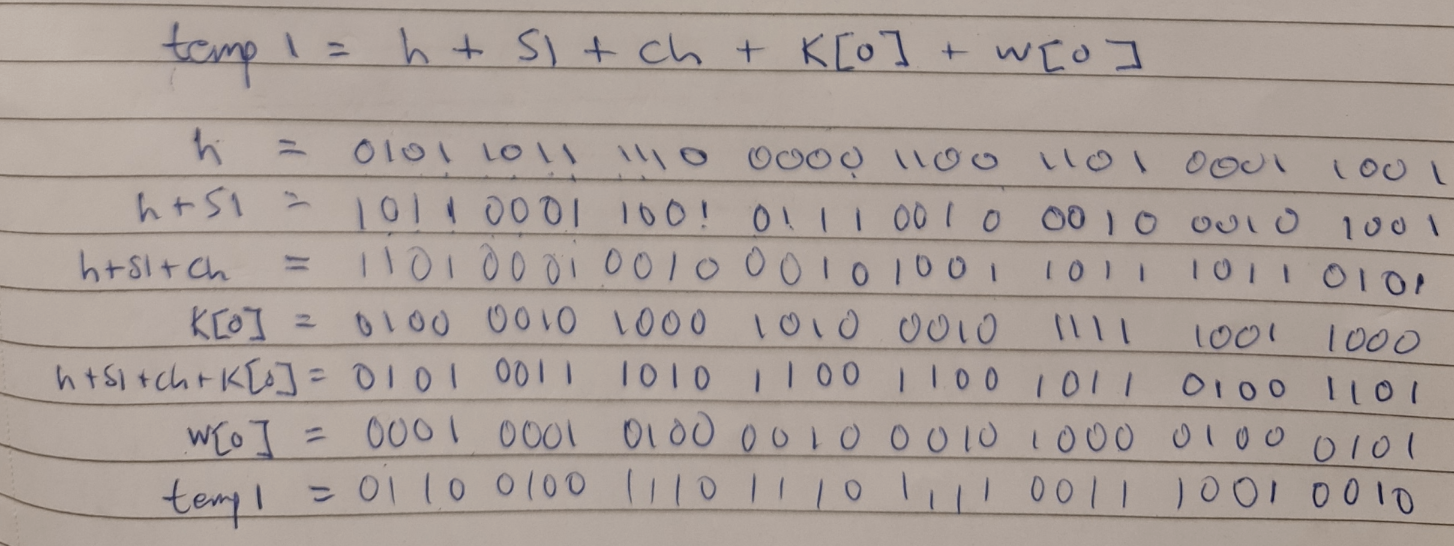 temp 1 = h + S1 + ch + K[0] + w[0]
h = 0101 1011 1110 0000 1100 1101 0001 1001
h+S1 = 1011 0001 1001 0111 0010 0010 0010 1001
h+S1+ch = 1101 0001 0010 0010 1001 1011 1011 0101
K[0] = 0100 0010 1000 1010 0010 1111 1001 1000
h+S1+ch+K[0] = 0101 0011 1010 1100 1100 1011 0100 1101
w[0] = 0001 0001 0100 0010 0010 1000 0100 0101
temp1 = 0110 0100 1110 1110 1111 0011 1001 0010